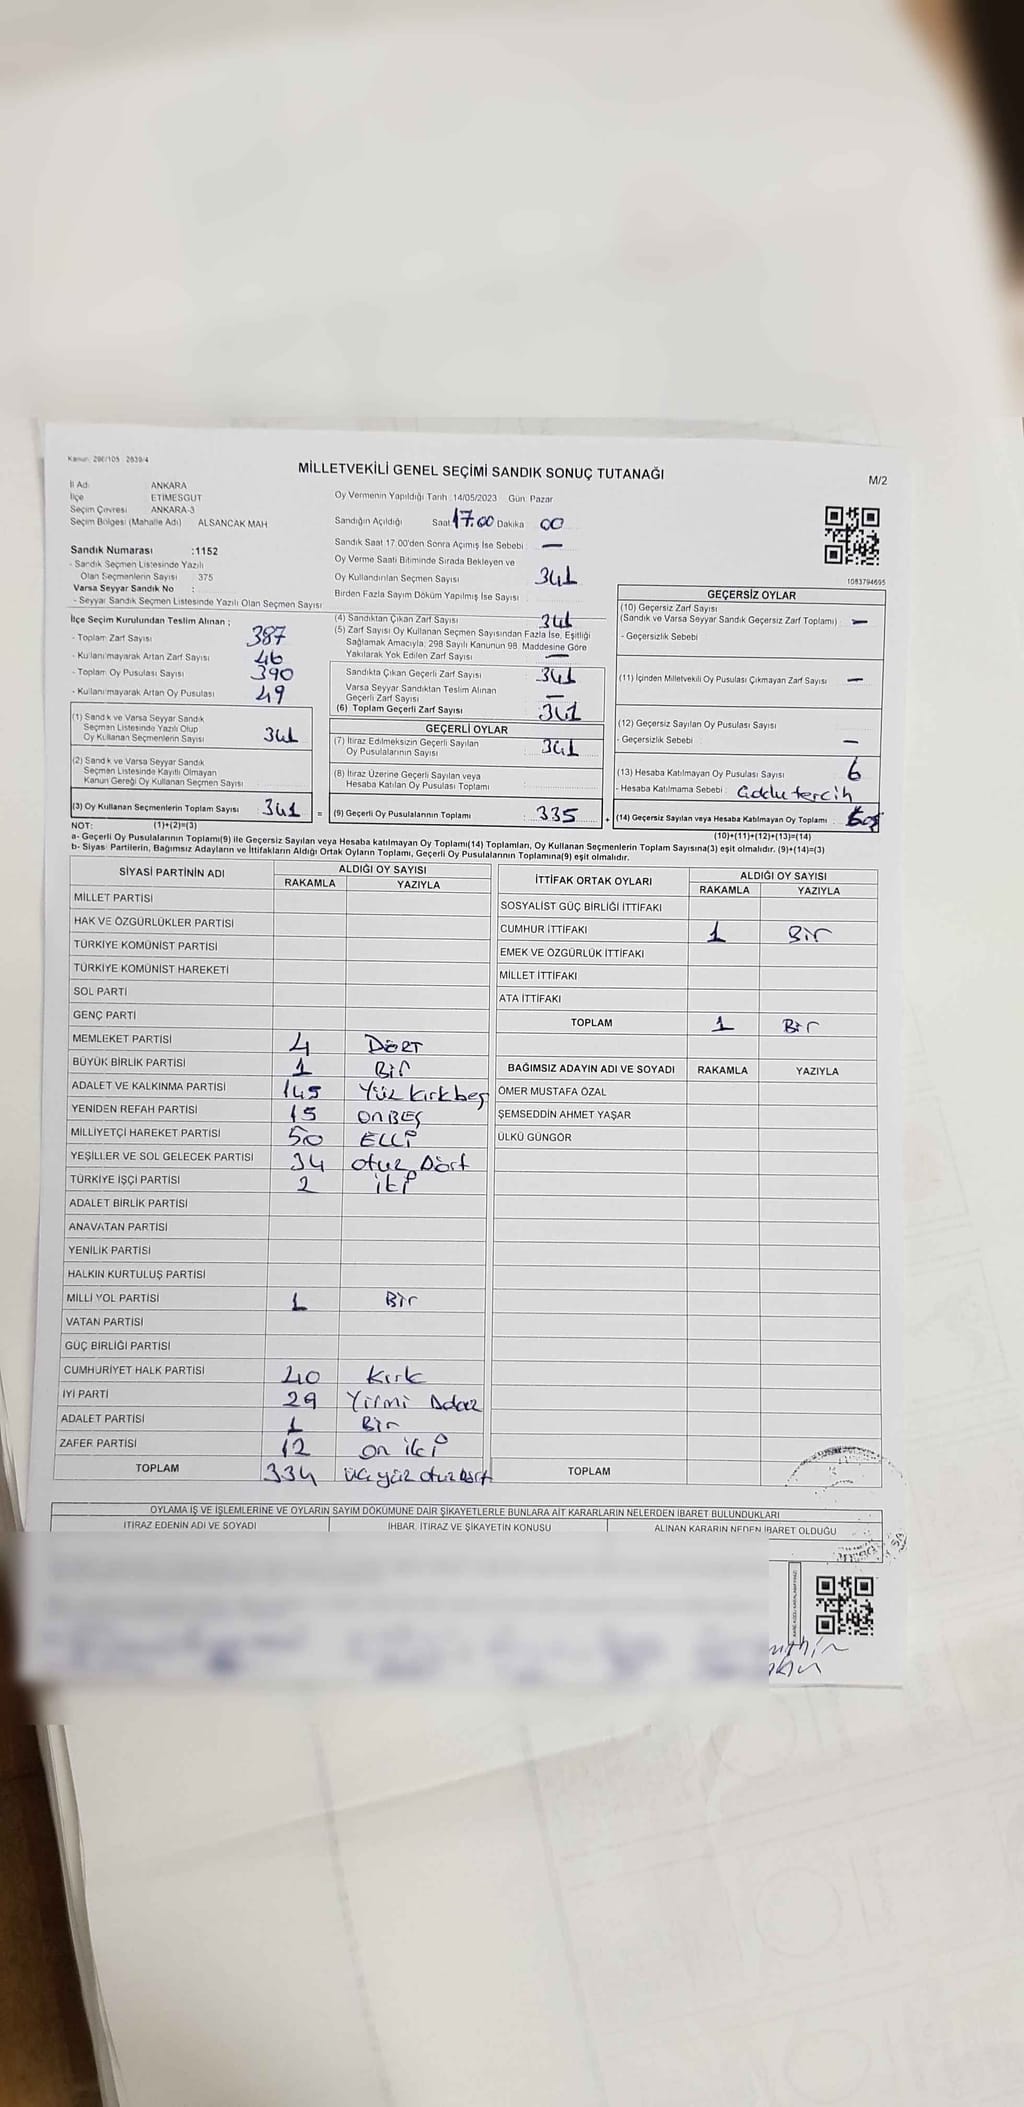 Kanun: 298/105 - 2839/4
MİLLETVEKİLİ GENEL SEÇİMİ SANDIK SONUÇ TUTANAĞI
M/2
İl Adı ANKARA
İlçe ETİMESGUT
Seçim Çevresi ANKARA-3
Seçim Bölgesi (Mahalle Adı) ALSANCAK MAH
Sandık Numarası :1152
- Sandık Seçmen Listesinde Yazılı
Olan Seçmenlerin Sayısı 375
Varsa Seyyar Sandık No :
- Seyyar Sandık Seçmen Listesinde Yazılı Olan Seçmen Sayısı
Oy Vermenin Yapıldığı Tarih : 14/05/2023 Gün: Pazar
Sandığın Açıldığı Saat 17:00 Dakika 00
Sandık Saat 17:00'den Sonra Açımış İse Sebebi : —
Oy Verme Saati Bitiminde Sırada Bekleyen ve
Oy Kullandırılan Seçmen Sayısı : 341
Birden Fazla Sayım Döküm Yapılmış İse Sayısı :
1083794695
İlçe Seçim Kurulundan Teslim Alınan ;
- Toplam Zarf Sayısı 387
- Kullanılmayarak Artan Zarf Sayısı 46
- Toplam Oy Pusulası Sayısı 390
- Kullanılmayarak Artan Oy Pusulası 49
(1) Sandık ve Varsa Seyyar Sandık
Seçmen Listesinde Yazılı Olup
Oy Kullanan Seçmenlerin Sayısı 341
(2) Sandık ve Varsa Seyyar Sandık
Seçmen Listesinde Kayıtlı Olmayan
Kanun Gereği Oy Kullanan Seçmen Sayısı
(3) Oy Kullanan Seçmenlerin Toplam Sayısı : 341 =
(4) Sandıktan Çıkan Zarf Sayısı : 341
(5) Zarf Sayısı Oy Kullanan Seçmen Sayısından Fazla İse, Eşitliği
Sağlamak Amacıyla, 298 Sayılı Kanunun 98. Maddesine Göre
Yakılarak Yok Edilen Zarf Sayısı : —
Sandıkta Çıkan Geçerli Zarf Sayısı : 341
Varsa Seyyar Sandıktan Teslim Alınan
Geçerli Zarf Sayısı : —
(6) Toplam Geçerli Zarf Sayısı : 341
GEÇERLİ OYLAR
(7) İtiraz Edilmeksizin Geçerli Sayılan
Oy Pusulalarının Sayısı : 341
(8) İtiraz Üzerine Geçerli Sayılan veya
Hesaba Katılan Oy Pusulası Toplamı :
(9) Geçerli Oy Pusulalarının Toplamı : 335 +
GEÇERSİZ OYLAR
(10) Geçersiz Zarf Sayısı
(Sandık ve Varsa Seyyar Sandık Geçersiz Zarf Toplamı) : —
- Geçersizlik Sebebi
(11) İçinden Milletvekili Oy Pusulası Çıkmayan Zarf Sayısı : —
(12) Geçersiz Sayılan Oy Pusulası Sayısı :
- Geçersizlik Sebebi : —
(13) Hesaba Katılmayan Oy Pusulası Sayısı : 6
- Hesaba Katılmama Sebebi :
(14) Geçersiz Sayılan veya Hesaba Katılmayan Oy Toplamı :
NOT: (1)+(2)=(3)
(10)+(11)+(12)+(13)=(14)
a- Geçerli Oy Pusulalarının Toplamı(9) ile Geçersiz Sayılan veya Hesaba katılmayan Oy Toplamı(14) Toplamları, Oy Kullanan Seçmenlerin Toplam Sayısına(3) eşit olmalıdır. (9)+(14)=(3)
b- Siyasi Partilerin, Bağımsız Adayların ve İttifakların Aldığı Ortak Oyların Toplamı, Geçerli Oy Pusulalarının Toplamına(9) eşit olmalıdır.
SİYASİ PARTİNİN ADI ALDIĞI OY SAYISI
RAKAMLA YAZIYLA
MİLLET PARTİSİ
HAK VE ÖZGÜRLÜKLER PARTİSİ
TÜRKİYE KOMÜNİST PARTİSİ
TÜRKİYE KOMÜNİST HAREKETİ
SOL PARTİ
GENÇ PARTİ
MEMLEKET PARTİSİ 4 DÖRT
BÜYÜK BİRLİK PARTİSİ 1 Bir
ADALET VE KALKINMA PARTİSİ 145 Yüz kırkbeş
YENİDEN REFAH PARTİSİ 15 onBEŞ
MİLLİYETÇİ HAREKET PARTİSİ 50 ELLİ
YEŞİLLER VE SOL GELECEK PARTİSİ 34 otuz Dört
TÜRKİYE İŞÇİ PARTİSİ 2 iki
ADALET BİRLİK PARTİSİ
ANAVATAN PARTİSİ
YENİLİK PARTİSİ
HALKIN KURTULUŞ PARTİSİ
MİLLİ YOL PARTİSİ 1 Bir
VATAN PARTİSİ
GÜÇ BİRLİĞİ PARTİSİ
CUMHURİYET HALK PARTİSİ 40 Kırk
İYİ PARTİ 29 Yirmi Dokuz
ADALET PARTİSİ 1 Bir
ZAFER PARTİSİ 12 on iki
TOPLAM 334 üç yüz otuz dört
İTTİFAK ORTAK OYLARI ALDIĞI OY SAYISI
RAKAMLA YAZIYLA
SOSYALİST GÜÇ BİRLİĞİ İTTİFAKI
CUMHUR İTTİFAKI 1 Bir
EMEK VE ÖZGÜRLÜK İTTİFAKI
MİLLET İTTİFAKI
ATA İTTİFAKI
TOPLAM 1 Bir
BAĞIMSIZ ADAYIN ADI VE SOYADI RAKAMLA YAZIYLA
ÖMER MUSTAFA ÖZAL
ŞEMSEDDİN AHMET YAŞAR
ÜLKÜ GÜNGÖR
TOPLAM
OYLAMA İŞ VE İŞLEMLERİNE VE OYLARIN SAYIM DÖKÜMÜNE DAİR ŞİKAYETLERLE BUNLARA AİT KARARLARIN NELERDEN İBARET BULUNDUKLARI
İTİRAZ EDENİN ADI VE SOYADI İHBAR, İTİRAZ VE ŞİKAYETİN KONUSU ALINAN KARARIN NEDEN İBARET OLDUĞU